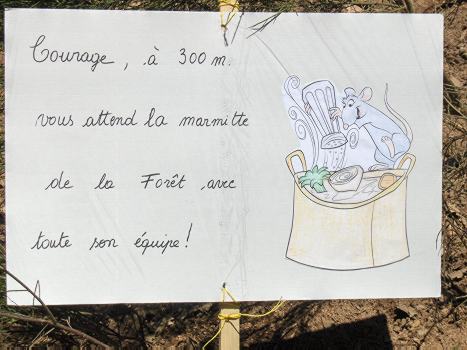 Courage, à 300 m.
vous attend la marmitte
de la Forêt avec
toute son équipe!